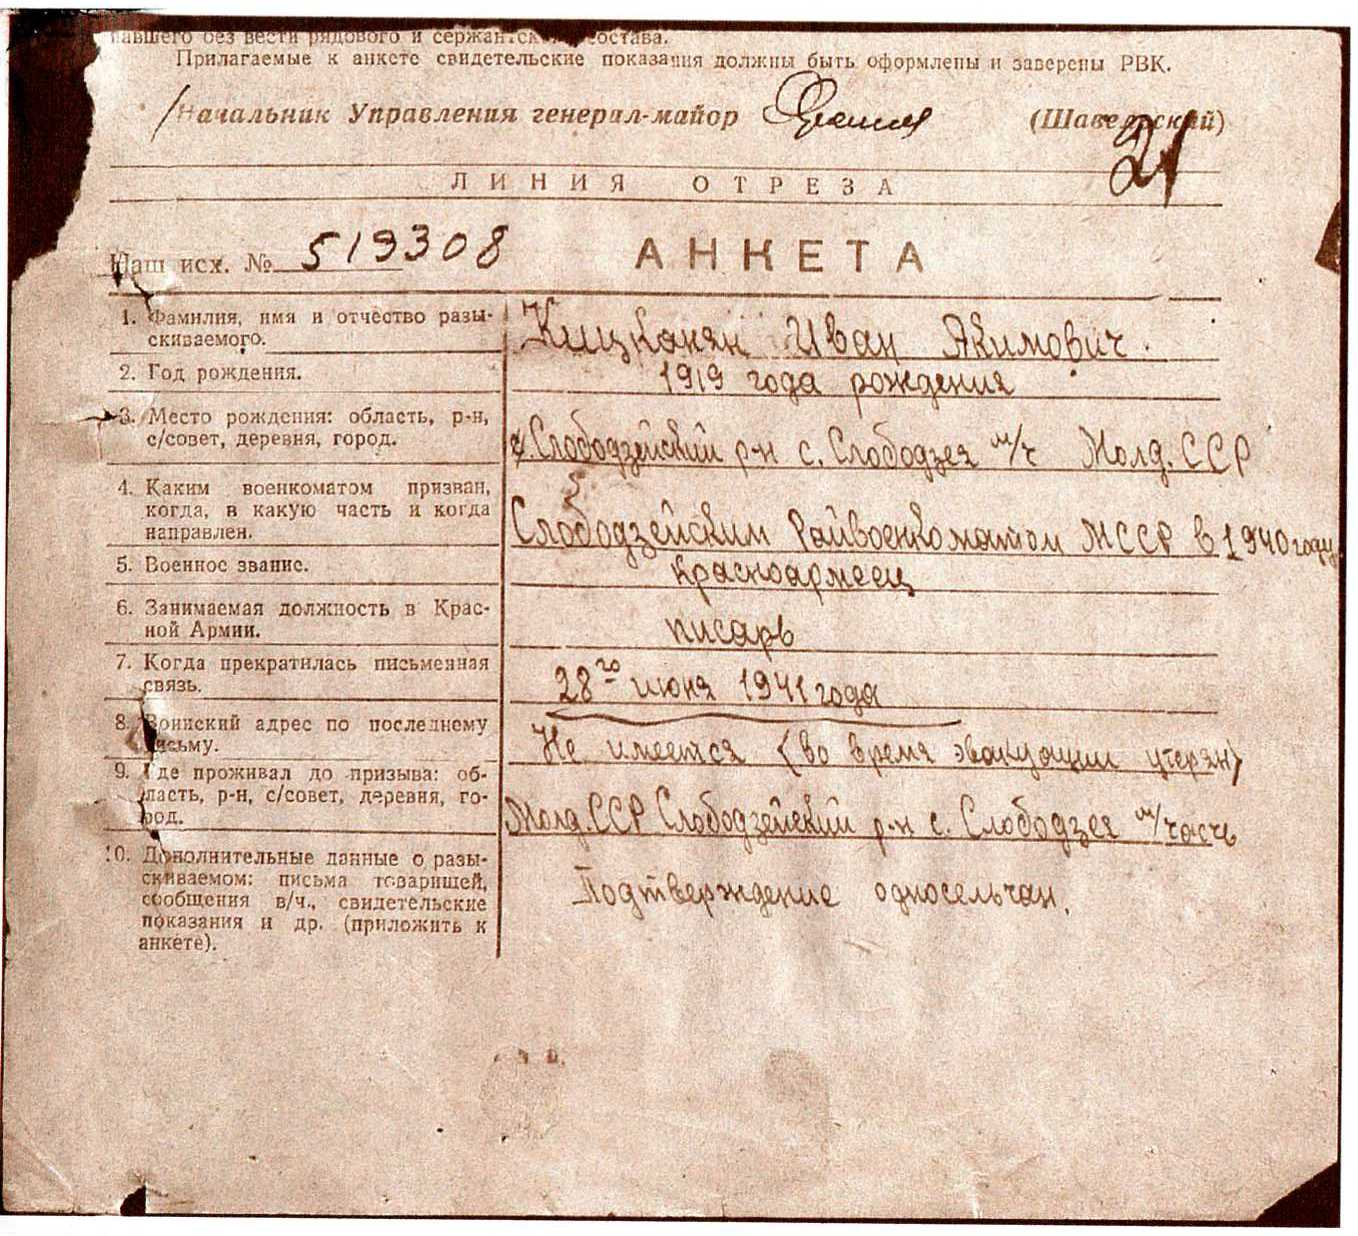 павшего без вести рядового и сержантского состава.
Прилагаемые к анкете свидетельские показания должны быть оформлены и заверены РВК.
Начальник Управления генерал-майор (Шавельский)
21
ЛИНИЯ ОТРЕЗА
Наш исх. № 519308 АНКЕТА
1. Фамилия, имя и отчество разы-
скиваемого.
Кицканян Иван Якимович.
2. Год рождения.
1919 года рождения
3. Место рождения: область, р-н,
с/совет, деревня, город.
Слободзейский р-н с. Слободзея м/ч Молд. ССР
4. Каким военкоматом призван,
когда, в какую часть и когда
направлен.
Слободзейским Райвоенкоматом МССР в 1940 году
5. Военное звание.
красноармеец
6. Занимаемая должность в Крас-
ной Армии.
писарь
7. Когда прекратилась письменная
связь.
28го июня 1941 года
8. Воинский адрес по последнему
письму.
Не имеется (во время эвакуации утерян)
9. Где проживал до призыва: об-
ласть, р-н, с/совет, деревня, го-
род.
Молд. ССР Слободзейский р-н с. Слободзея м/часть
10. Дополнительные данные о разы-
скиваемом: письма товарищей,
сообщения в/ч., свидетельские
показания и др. (приложить к
анкете).
Подтверждение односельчан.